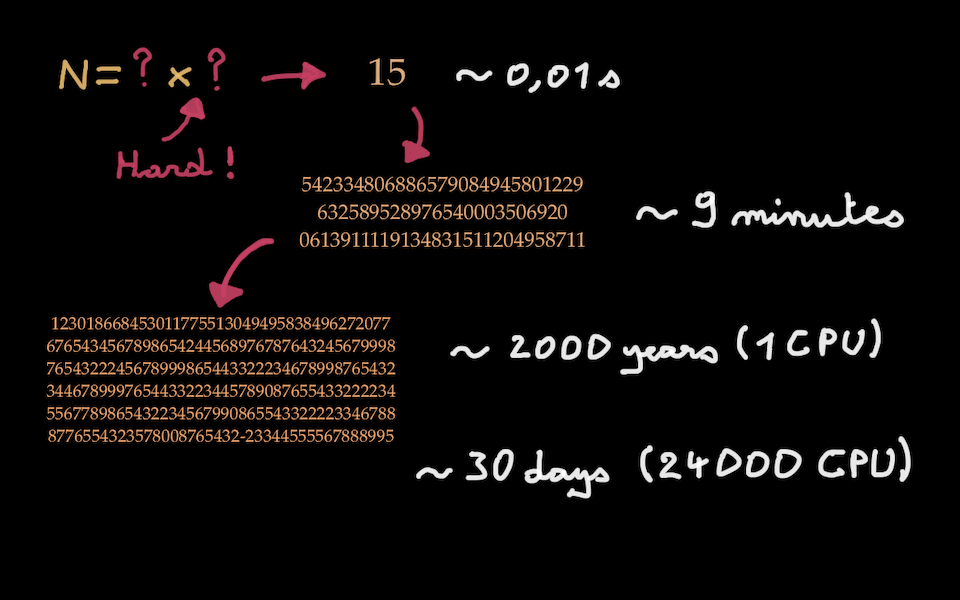 N = ? × ? 15 ~ 0,01 s
Hard !
542334806886579084945801229
632589528976540003506920
061391111913483151120495871​1
~ 9 minutes
1230186684530117755130494958384962720​77
676543456789865424456897678764324567999​8
765432224567899986544332223467899876543​2
344678999765443322344578908765543322223​4
556778986543223456799086554332222334678​8
8776554323578008765432-23344555567888995
~ 2000 years (1 CPU)
~ 30 days (24000 CPU)